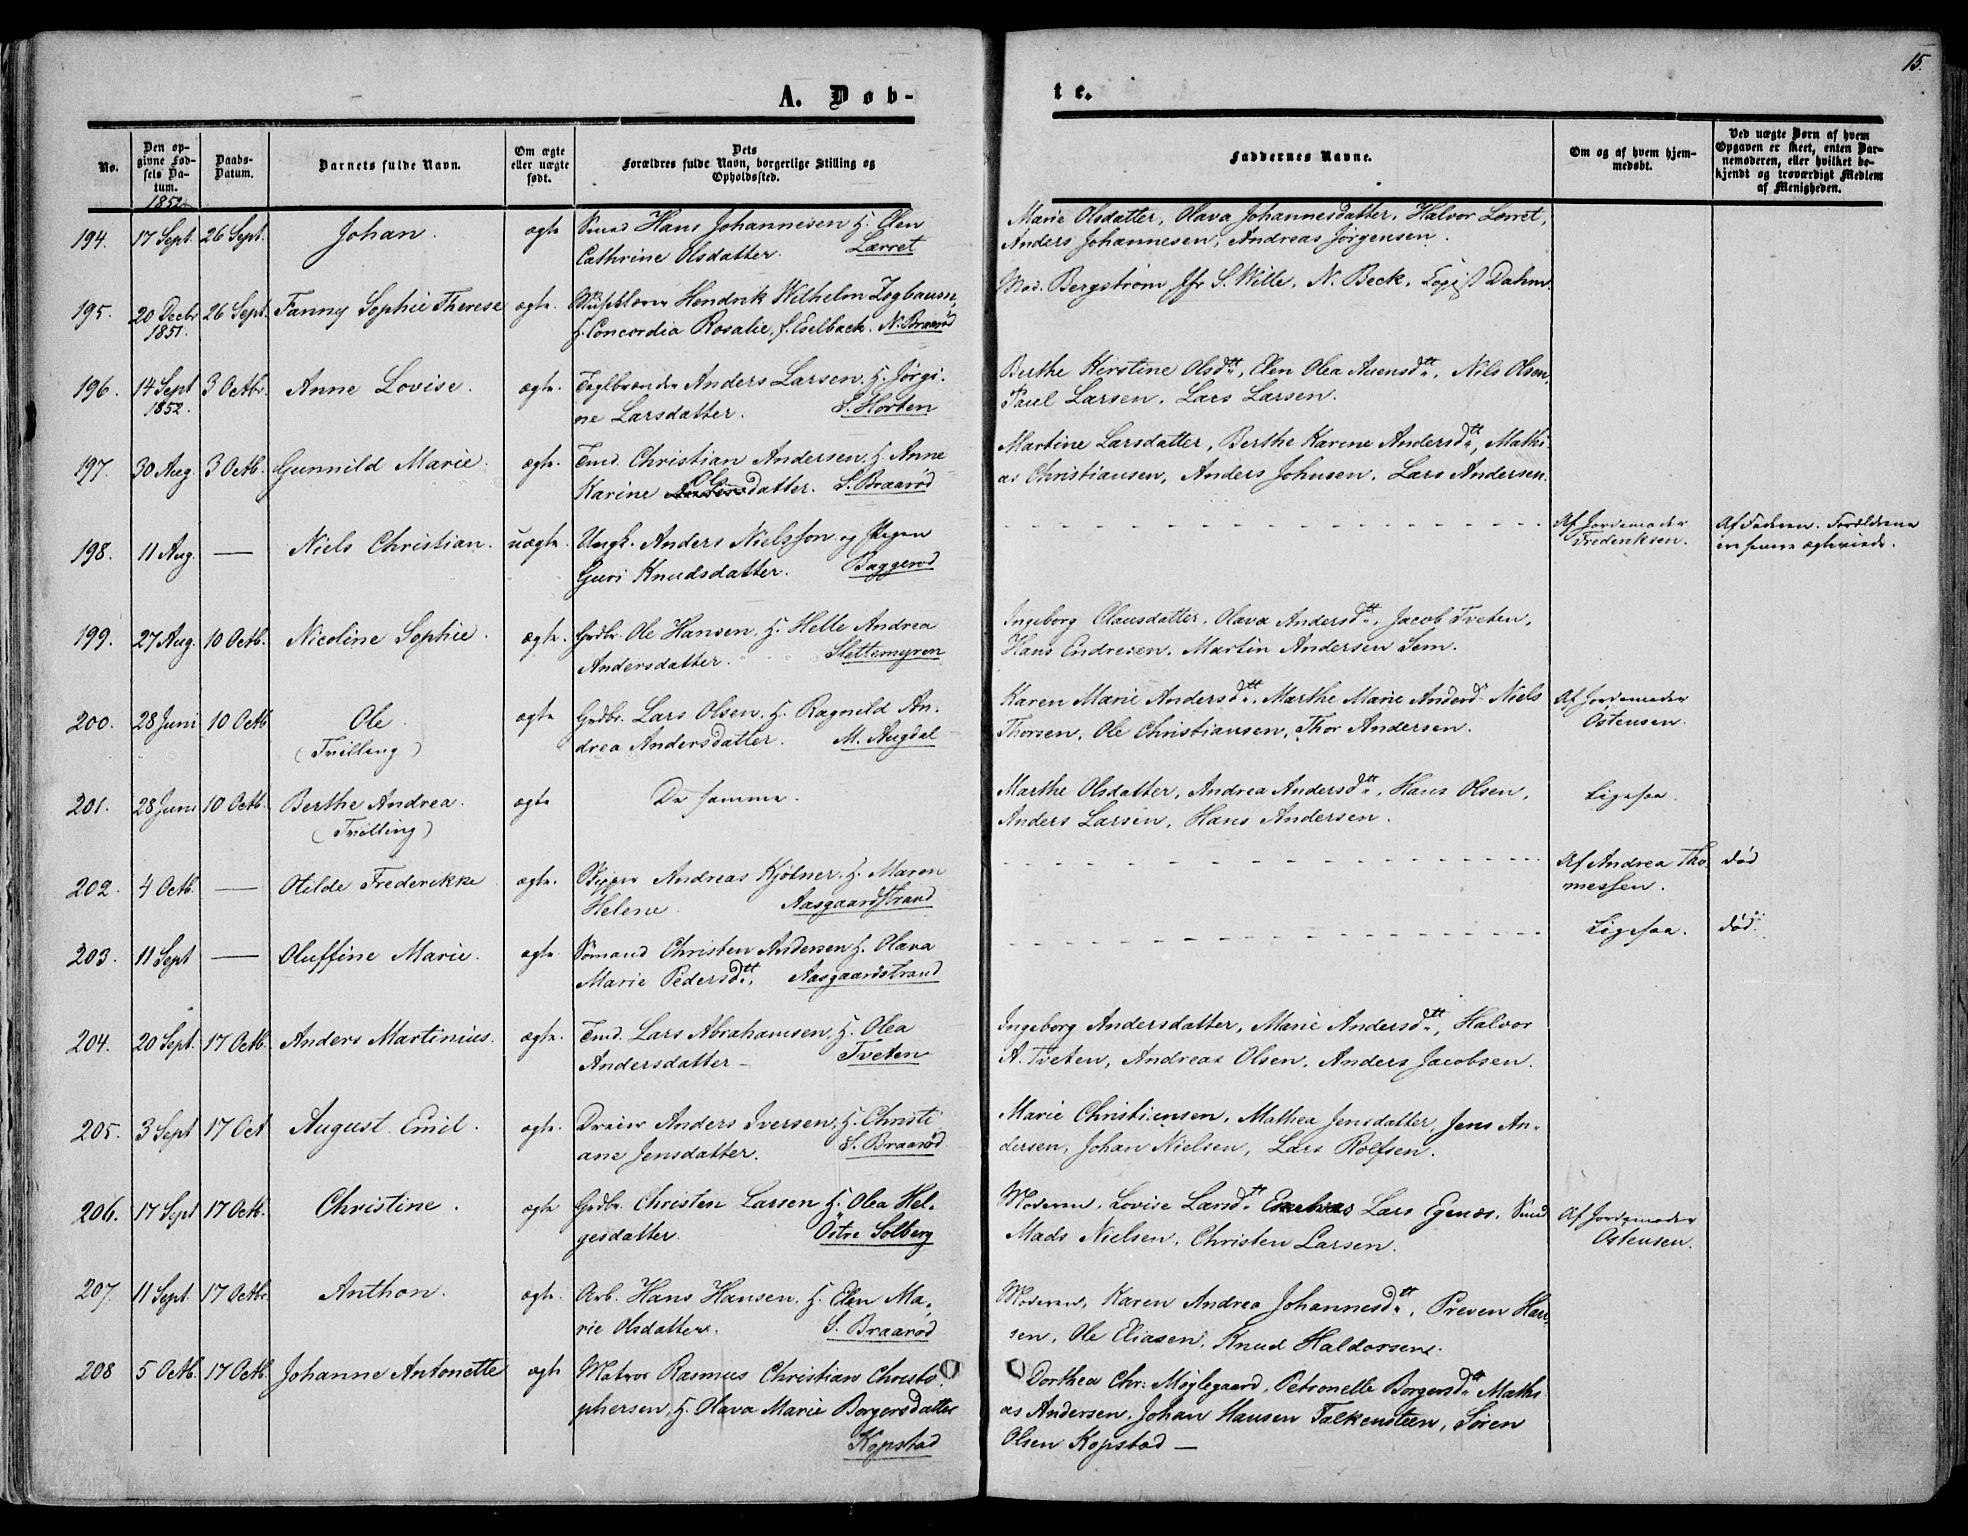 15.
A. Døb-
te.
No.
Den op-
givne Fød-
sels Da-
tum.
1852
Daabs-
Datum.
Barnets fulde Navn.
Om ægte
eller uægte
født.
Dets
Forældres fulde Navn, borgerlige Stilling og
Opholdssted.
Faddernes Navne.
Om og af hvem hjem-
medøbt.
Ved uægte Børn af hvem
Opgaven er skeet, enten Bar-
nemoderen, eller hvilket be-
kjendt og troværdigt Medlem
af Menigheden.
194. 17 Sept. 26 Sept. Johan. ægte Smed Hans Johannesen H. Elen
Cathrine Olsdatter. Lørret
Marie Olsdatter, Olava Johannesdatter, Halvor Lørret,
Anders Johannesen, Andreas Jørgensen.
195. 20 Decbr 26 Sept. Fanny Sophie Therese ægte. Musiklærer Hendrik Wilhelm Zogbaum,
1851. H. Concordia Rosalie, f. Eselbach. N. Braarød
Mad. Bergstrøm Jfr S. Wille, N. Beck, Copist Dahm.
196. 14 Sept 3 Octbr. Anne Lovise. ægte. Teglbrænder Anders Larsen, H. Jørgi-
1852. ne Larsdatter. S. Horten
Berthe Kirstine Olsdtt, Elen Olea Auensdtt, Nils Olsen,
Paul Larsen, Lars Larsen.
197. 30 Aug. 3 Octb. Gunnild Marie. ægte. Tmd. Christian Andersen, H. Anne
Karine Olsdatter. S. Braarød
Martine Larsdatter, Berthe Karine Andersdtt, Mathi-
as Christiansen, Anders Johnsen, Lars Andersen.
198. 11 Aug. — Niels Christian. uægte Ungk. Anders Nielssøn og Pigen
Guri Knudsdatter. Baggerød
Af Jordemoder
Frederiksen.
Af Faderen. Forældrene
ere senere ægteviede.
199. 27 Aug. 10 Octb. Nicoline Sophie. ægte. Grdbr. Ole Hansen, H. Helle Andrea
Andersdatter. Slettemyren
Ingeborg Clausdatter, Olava Andersdtt, Jacob Tveten,
Hans Endresen, Martin Andersen Sem.
200. 28 Juni 10 Octb Ole. ægte Grdbr. Lars Olsen, H. Ragnild An-
(Tvilling) drea Andersdatter. M. Augdal
Karen Marie Andersdtt, Marthe Marie Andersd. Niels
Thorsen, Ole Christiansen, Thor Andersen.
Af Jordemoder
Østensen.
201. 28 Juni 10 Octb. Berthe Andrea. ægte De samme.
(Tvilling)
Marthe Olsdatter, Andrea Andersdtt, Hans Olsen,
Anders Larsen, Hans Andersen.
Ligesaa.
202. 4 Octb. — Otilde Frederikke ægte. Skipper Andreas Kjølner, H. Maren
Helene. Aasgaardstrand
Af Andrea Tho-
messen.
død
203. 11 Sept — Oluffine Marie. ægte. Sømand Christen Andersen H. Olava
Marie Pedersdtt. Aasgaardstrand
Ligesaa. død.
204. 20 Sept. 17 Octb. Anders Martinius. ægte. Tmd. Lars Abrahamsen, H. Olea
Andersdatter — Tveten
Ingeborg Andersdatter, Marie Andersdtt, Halvor
A. Tveten, Andreas Olsen, Anders Jacobsen.
205. 3 Sept 17 Oct August Emil. ægte. Dreier Anders Iversen, H. Christi
ane Jensdatter. S. Braarød
Marie Christiansen, Mathea Jensdatter, Jens An-
dersen, Johan Nielsen, Lars Rolfsen.
206. 17 Sept 17 Octb. Christine. ægte Grdbr. Christen Larsen H. Olea Hel-
gesdatter. Østre Solberg
Moderen, Lovise Larsdtt Lars Egenæs, Smed
Mads Nielsen, Christen Larsen.
Af Jordemoder
Østensen.
207. 11 Sept. 17 Octbr. Anthon. ægte. Arb. Hans Hansen, H. Elen Ma-
rie Olsdatter. S. Braarød
Moderen, Karen Andrea Johannesdtt, Preven Han-
sen, Ole Eliasen, Knud Haldorsen.
208 5 Octb. 17 Octb. Johanne Antonette ægte Matros Rasmus Christian Christo-
phersen, H. Olava Marie Borgersdatter
Kopstad
Dorthea Chr. Møylegaard, Petronelle Borgersdtt Mathi
as Andersen, Johan Hansen Falkensteen, Søren
Olsen Kopstad —